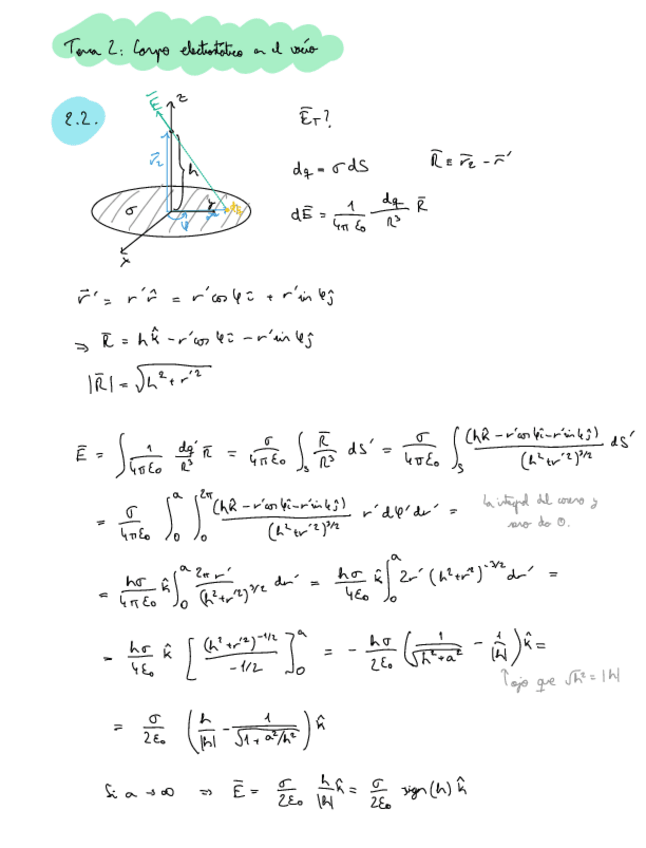 Tema 2: Campo electrostático en el vacío
2.2.
Ē
z
r̄₂
h
σ
r'
φ
x
Ē_T?
dq = σ dS
R̄ ≡ r̄₂ - r̄'
dĒ = 1/(4πε₀) dq/R³ R̄
r̄' = r' r̂ = r' cos φ î + r' sin φ ĵ
⇒ R̄ = h k̂ - r' cos φ î - r' sin φ ĵ
|R̄| = √(h² + r'²)
Ē = ∫ 1/(4πε₀) dq'/R³ R̄ = σ/(4πε₀) ∫_S R̄/R³ dS' = σ/(4πε₀) ∫_S (h k̂ - r' cos φ î - r' sin φ ĵ)/(h² + r'²)^(3/2) dS'
= σ/(4πε₀) ∫₀^a ∫₀^2π (h k̂ - r' cos φ î - r' sin φ ĵ)/(h² + r'²)^(3/2) r' dφ' dr' =
La integral del coseno y
seno da 0.
= hσ/(4πε₀) k̂ ∫₀^a 2π r'/(h² + r'²)^(3/2) dr' = hσ/(4ε₀) k̂ ∫₀^a 2r' (h² + r'²)^(-3/2) dr' =
= hσ/(4ε₀) k̂ [(h² + r'²)^(-1/2)/(-1/2)]₀^a = - hσ/(2ε₀) (1/√(h² + a²) - 1/|h|) k̂ =
↑ ojo que √h² = |h|
= σ/(2ε₀) (h/|h| - 1/√(1 + a²/h²)) k̂
Si a → ∞ ⇒ Ē = σ/(2ε₀) h/|h| k̂ = σ/(2ε₀) sign(h) k̂